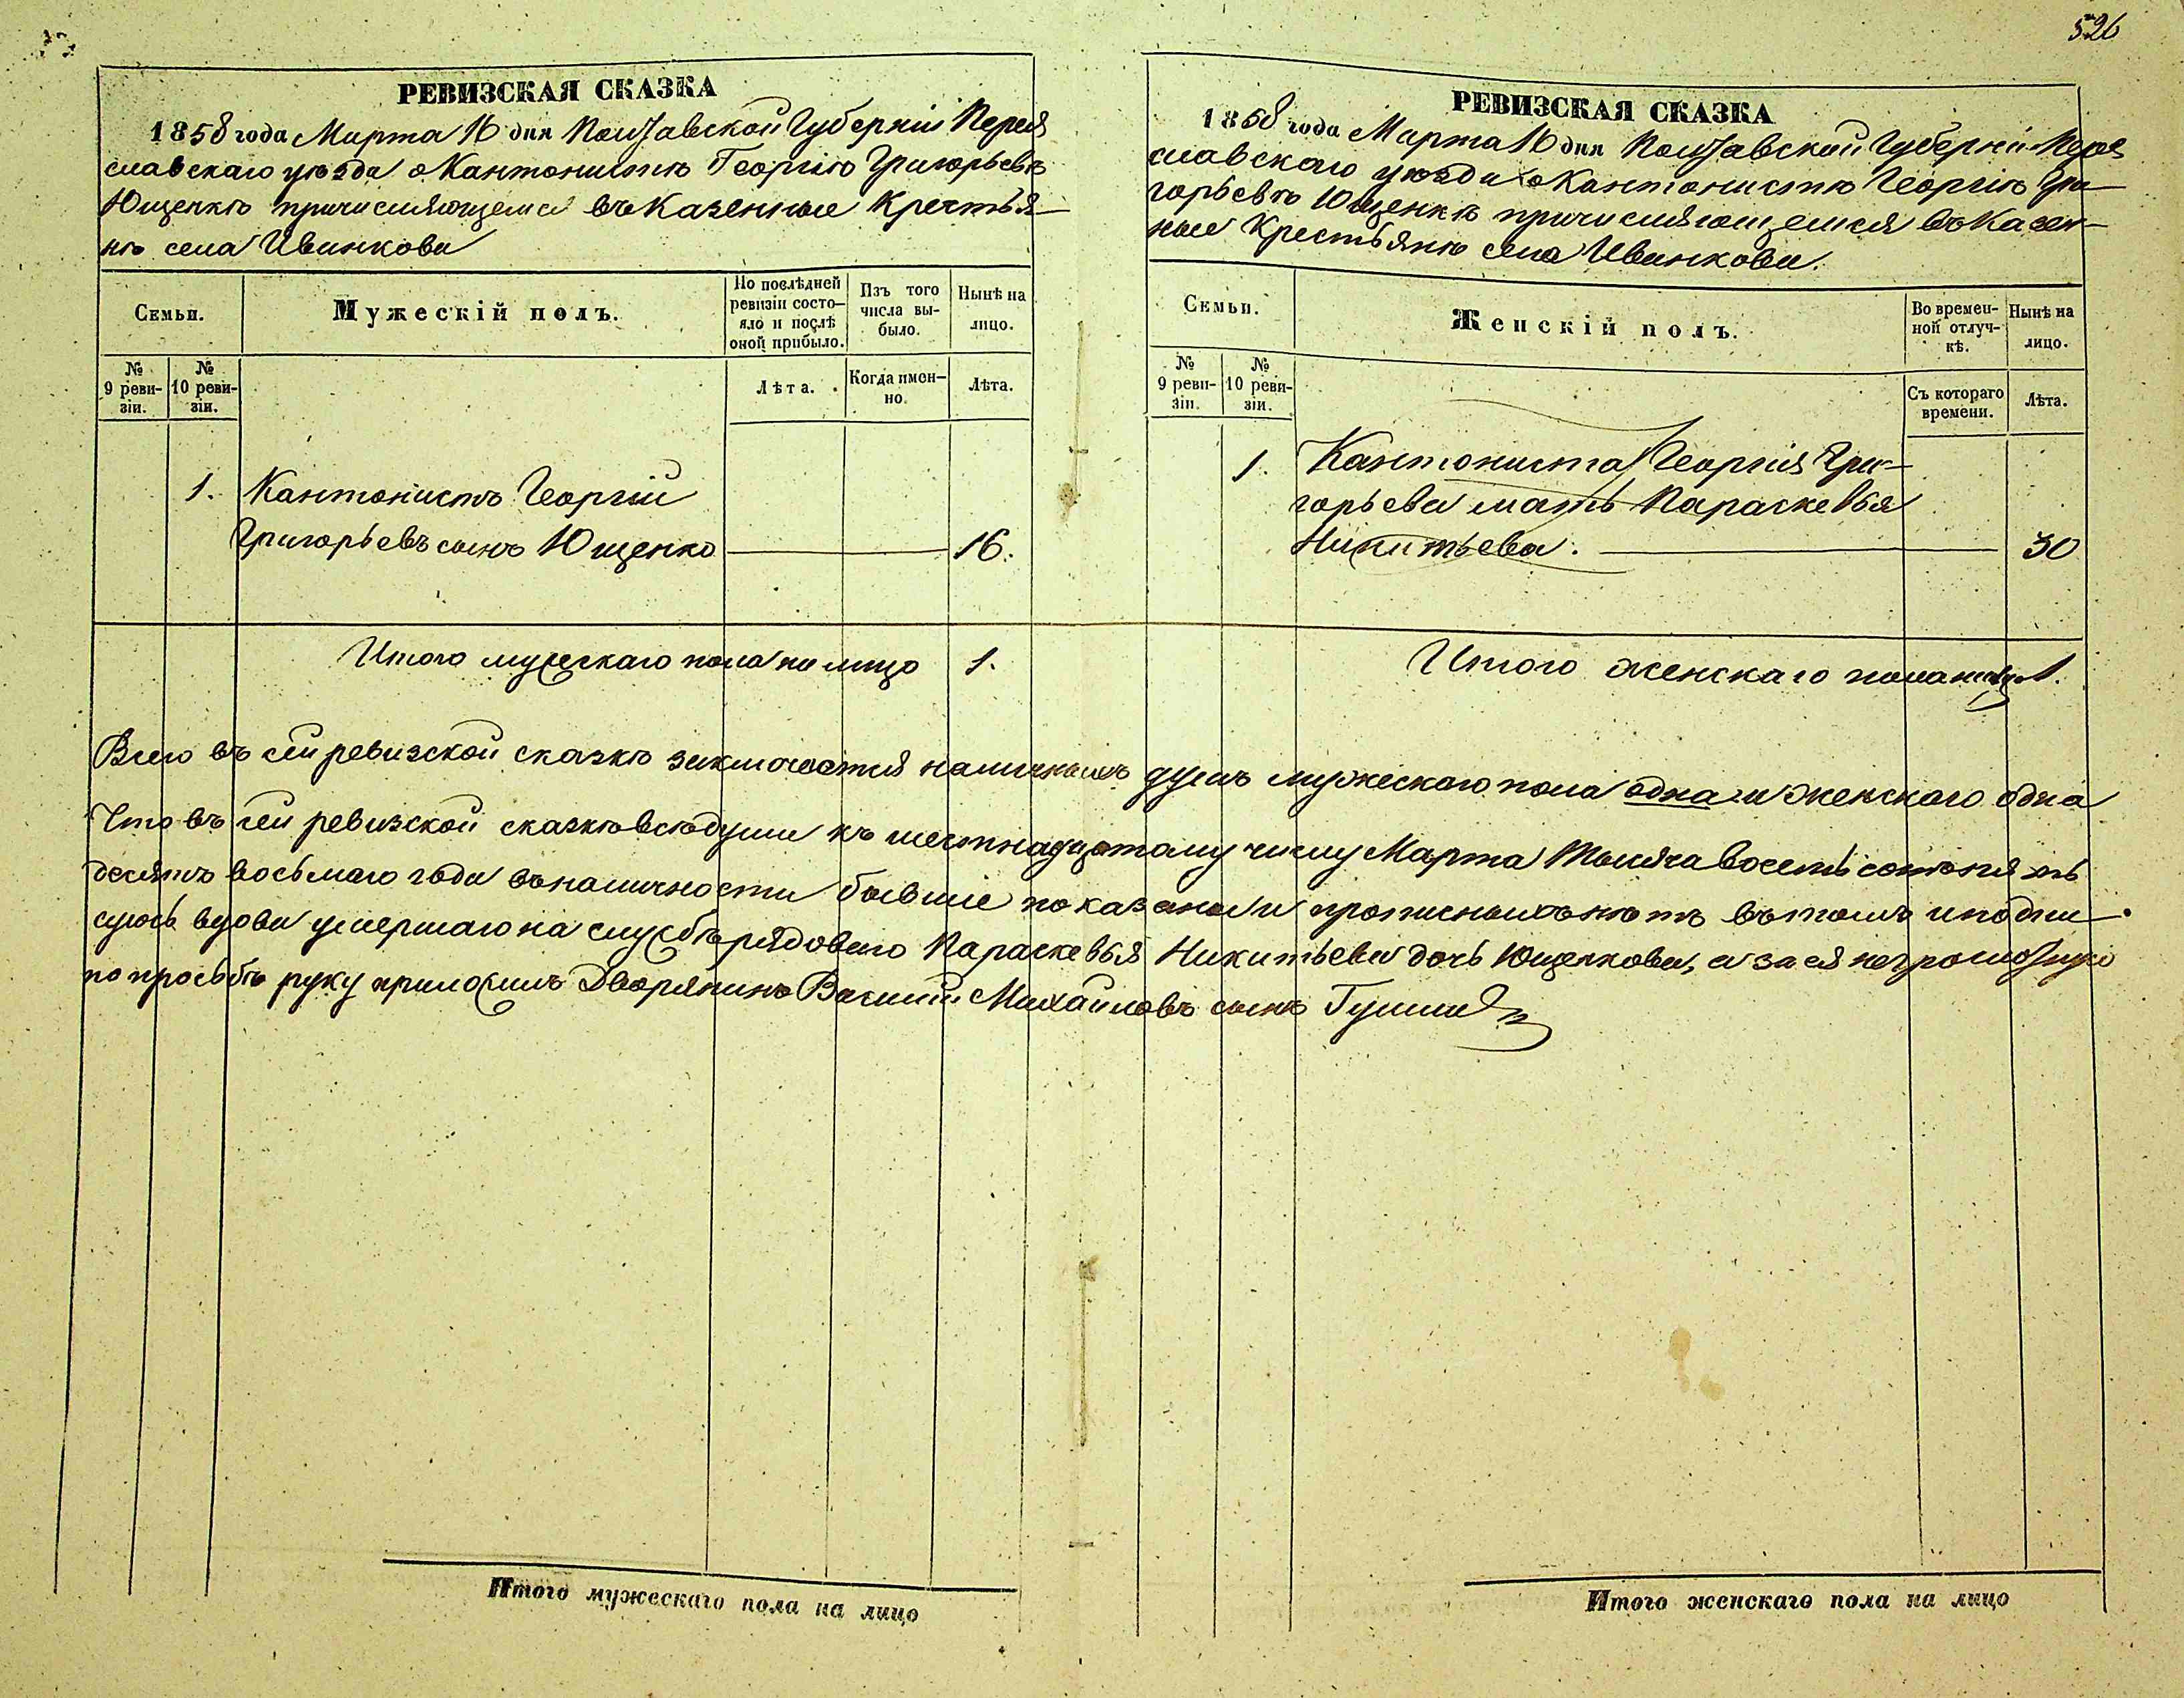 526
РЕВИЗСКАЯ СКАЗКА
1858 года Марта 16 дня Полтавской Губерніи Перея
славскаго уѣзда о Кантонистѣ Георгію Григорьевѣ
Ющенкѣ причисляющемся въ Казенные Крестья-
нѣ села Иванкова
Семьи.
Мужескій полъ.
По послѣдней ревизіи состо-яло и послѣ оной прибыло.
Изъ того числа вы-было.
Нынѣ на лицо.
№ 9 реви-зіи.
№ 10 реви-зіи.
Лѣта.
Когда имен-но.
Лѣта.
1. Кантонистъ Георгій
Григорьевъ сынъ Ющенко 16.
Итого мужескаго пола на лицо 1.
РЕВИЗСКАЯ СКАЗКА
1858 года Марта 16 дня Полтавской Губерніи Перея
славскаго уѣзда о Кантонистѣ Георгію Гри-
горьевѣ Ющенкѣ причисляющемся въ Казен-
ные Крестьянѣ села Иванкова.
Семьи.
Женскій полъ.
Во времен-ной отлуч-кѣ.
Нынѣ на лицо.
№ 9 реви-зіи.
№ 10 реви-зіи.
Съ котораго времени.
Лѣта.
1. Кантониста Георгія Гри-
горьева мать Параскевья
Никитьева. 30
Итого женскаго пола на лицо 1.
Всего въ сей ревизской сказкѣ заключается наличныхъ душъ мужескаго пола одна и женскаго одна
Что въ сей ревизской сказкѣ всѣ души къ шестнадцатому числу Марта тысяча восемь сотъ пять
десятъ восьмаго года въ наличности бывшіе показаны и прописныхъ нѣтъ въ томъ и подпи-
суюсь вдова умершаго на службѣ рядоваго Параскевья Никитьева дочь Ющенкова, а за ея неграмотную
по просьбѣ руку приложилъ Дворянинъ Василій Михайловъ сынъ
Итого мужескаго пола на лицо
Итого женскаго пола на лицо